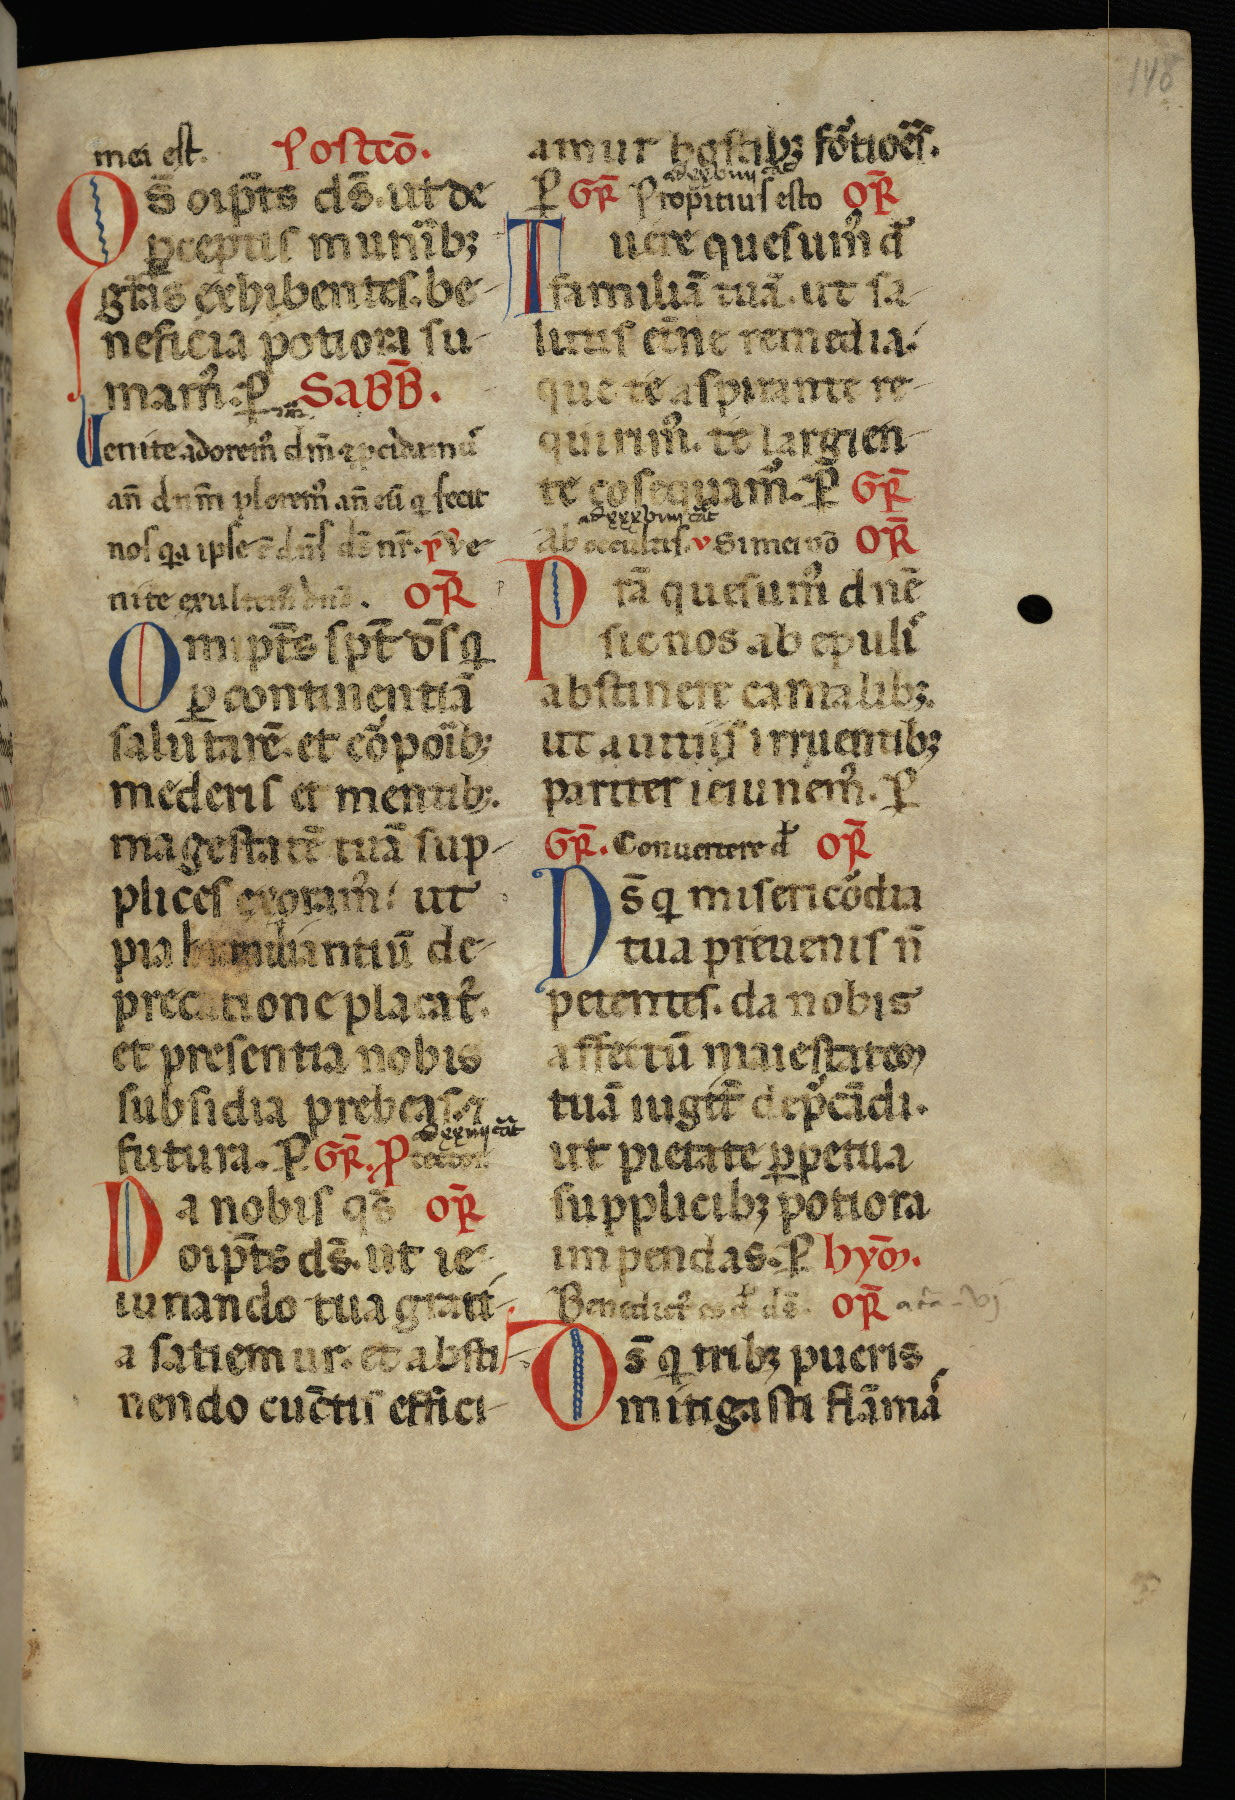 mei est. Postcō.
Os̄ oip̄ts ds̄. ut de
ꝑceptis munib;
gr̄as exhibentes. be-
neficia potiora su-
mam᷒. ꝑ Sabb̄.
Uenite adorem᷒ dm̄ ⁊ pcidamu᷒
an̄ dnm̄ plorem᷒ an̄ eū q fecit
nos q̄a ipse ē dn̄s ds̄ nr̄. p̄ Ve-
nite exultem᷒ dn̄o. OR̄
Omip̄ts sp̄t ds̄ q
ꝑ continentiā
salutarē. et cōpoib;
mederis et mentib;.
magestatē tuā sup-
plices exoram᷒. ut
pia humiliantiū de-
precatione placat᷒.
et presentia nobis
subsidia prebeas. ⁊
futura. P̄ GR̄. P
Da nobis qs̄ OR̄
oip̄ts ds̄. ut ie-
iunando tua grati-
a satiemur. et absti-
nendo cūctis effici-
amur hostib; fōtioēs.
P̄ GR̄ Propitius esto OR̄
Tuere quesum᷒ d
familiā tuā. ut sa-
lutis et̄ne remedia.
que te aspirante re-
quirim᷒. te largien-
te cōsequam᷒. P̄ GR̄
Ab occultis. v Si mei nō OR̄
Prā quesum᷒ dnē
sic nos ab epulis
abstinere carnalib;.
ut a uitiis irruentib;
pariter ieiunem᷒. P
GR̄. Conuertere d OR̄
Ds̄ q misericōdia
tua preuenis n̄
petentes. da nobis
affectū maiestatem
tuā iugit̄ dep̄cādi.
ut pietate ꝑpetua
supplicib; potiora
impendas. P hym̄.
Benedict᷒ es d ds̄. OR̄
Ds̄ q trib; pueris
mitigasti flāmas